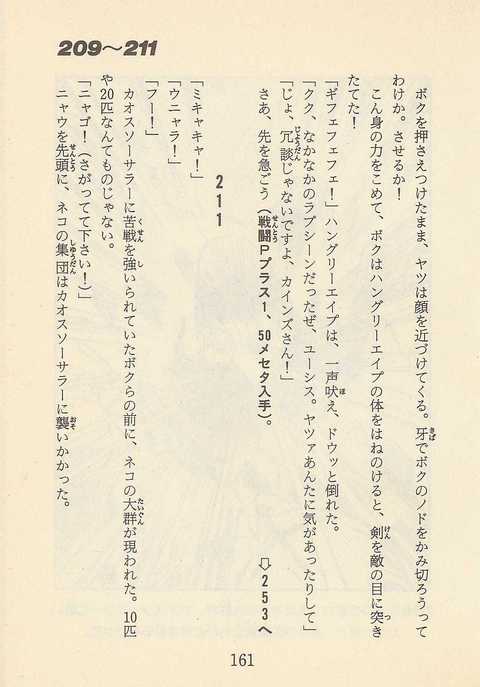 209〜211
ボクを押さえつけたまま、ヤツは顔を近づけてくる。牙でボクのノドをかみ切ろうって
わけか。させるか！
こん身の力をこめて、ボクはハングリーエイプの体をはねのけると、剣を敵の目に突き
たてた！
「ギフェフェフェ！」ハングリーエイプは、一声吠え、ドウッと倒れた。
「クク、なかなかのラブシーンだったぜ、ユーシス。ヤツァあんたに気があったりして」
「じょ、冗談じゃないですよ、カインズさん！」
さあ、先を急ごう（戦闘Pプラス1、50メセタ入手）。
⇩253へ
211
「ミキャキャ！」
「ウニャラ！」
「フー！」
カオスソーサラーに苦戦を強いられていたボクらの前に、ネコの大群が現われた。10匹
や20匹なんてものじゃない。
「ニャゴ！（さがってて下さい！）」
ニャウを先頭に、ネコの集団はカオスソーサラーに襲いかかった。
161